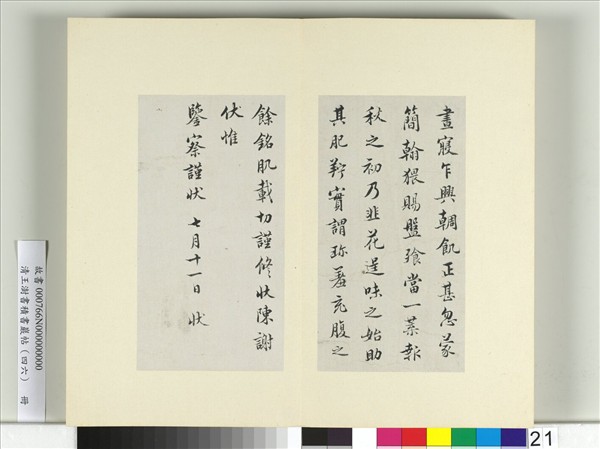 晝寢乍興輖飢正甚忽蒙
簡翰猥賜盤飧當一葉報
秋之初乃韭花逞味之始助
其肥羜實謂珍羞充腹之
餘銘肌載切謹修狀陳謝
伏惟
鑒察謹狀 七月十一日 狀
故書 000766N000000000
清王澍書積書巖帖(四六) 冊
21